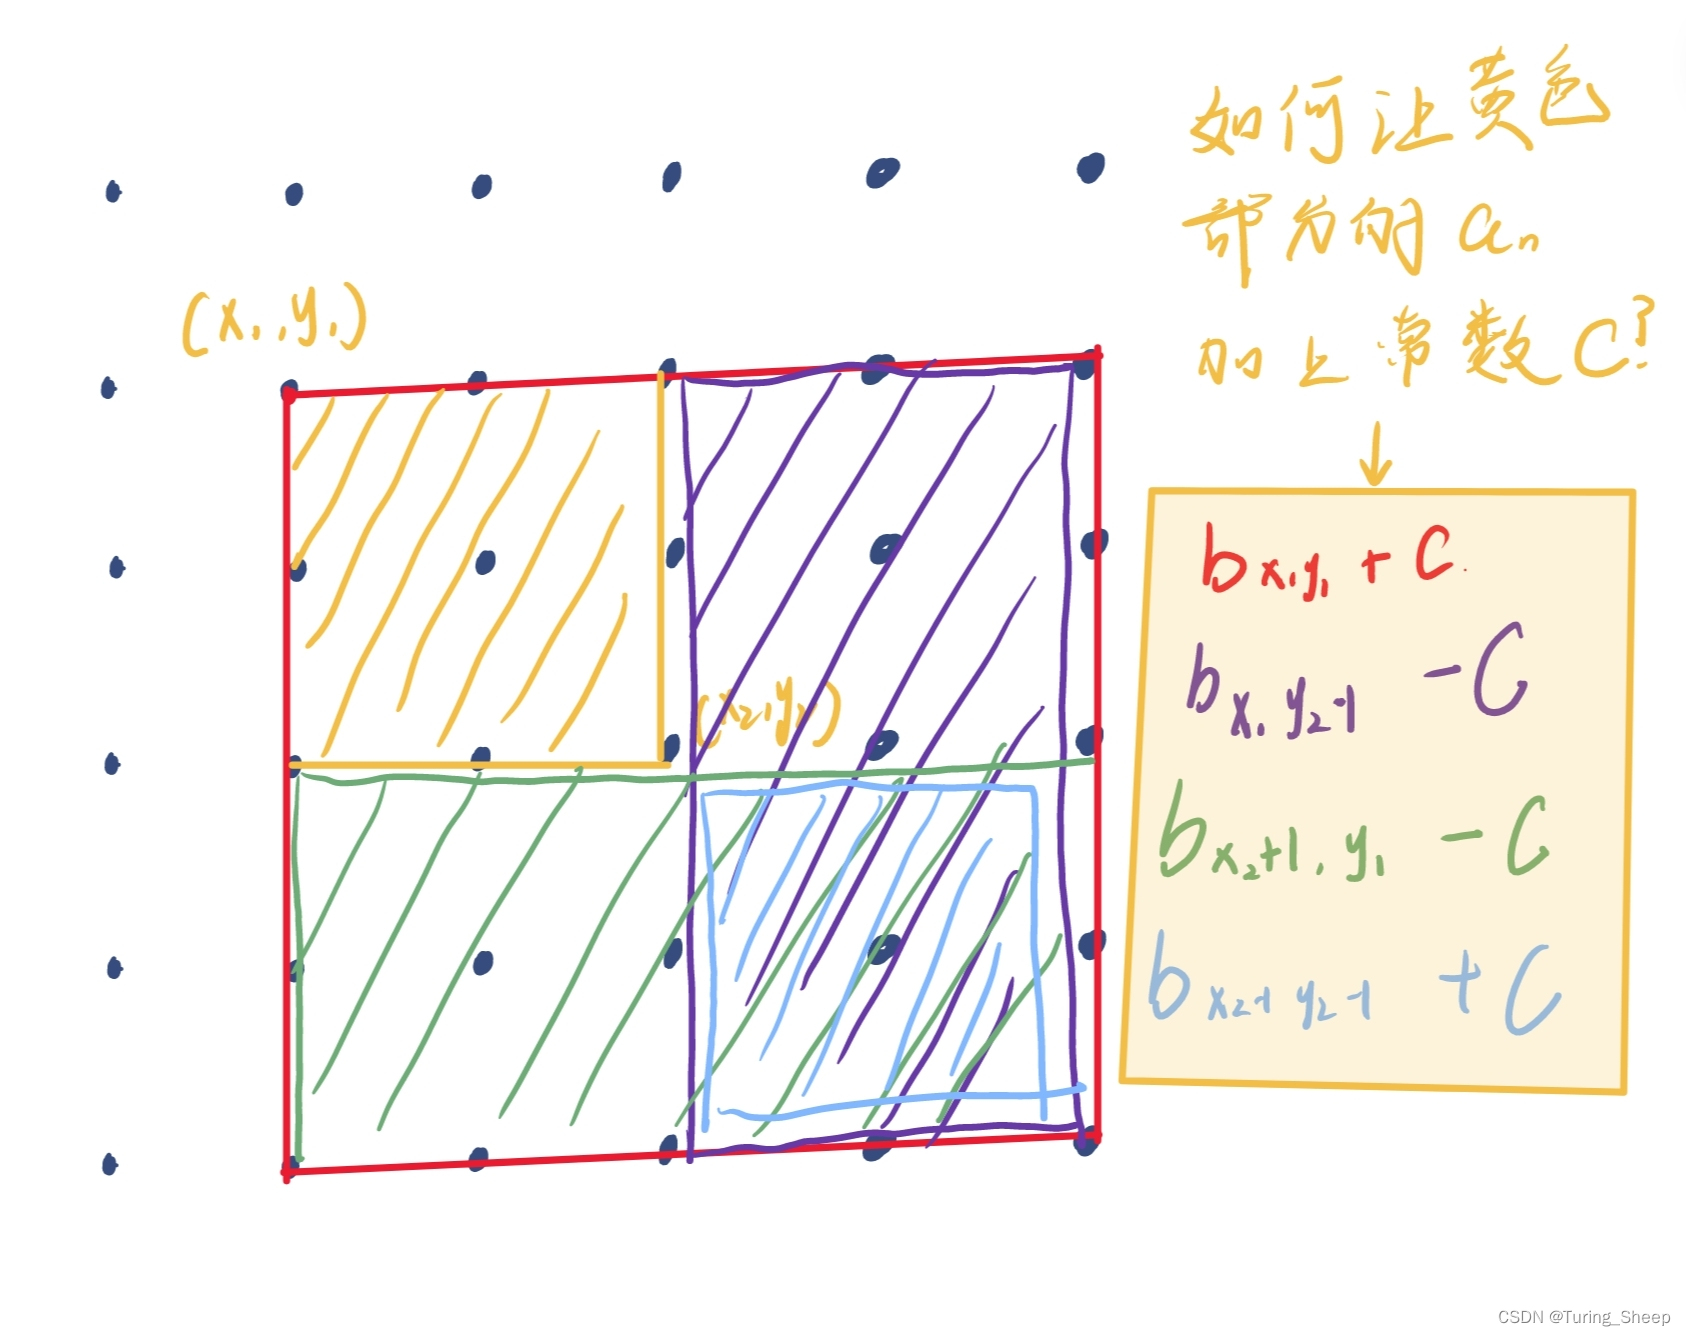 如何让黄色
部分的 an
加上常数C?
(x1,y1)
(x2,y2)
bx1y1 + C.
bx1y2-1 -C
bx2+1,y1 -C
bx2-1 y2-1 +C
CSDN @Turing_Sheep